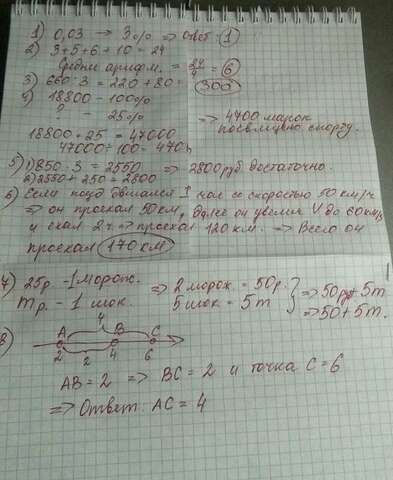 1) 0,03 → 3% ⇒ ответ: 1
2) 3+5+6+10 = 24
Средне арифм. = 24/4 = 6
3) 660 : 3 = 220 + 80 = 300
4) 18800 - 100%
? - 25%
⇒ 4700 марок посвящено спорту.
18800 · 25 = 47000
47000 : 100 = 470
5) 1) 850 · 3 = 2550
2) 2550 + 250 = 2800
⇒ 2800 руб достаточно.
6) Если поезд двигался 1 час со скоростью 50 км/ч
⇒ он проехал 50 км, далее он увелич V до 60 км/ч
и ехал 2 ч. ⇒ проехал 120 км. ⇒ Всего он
проехал 170 км
7) 25р. - 1 морож.
mр. - 1 шок.
⇒ 2 морож. = 50р.
5 шок = 5m
⇒ 50р + 5m
⇒ 50 + 5m.
8)
4
A B C
2 4 6
2
AB = 2 ⇒ BC = 2 и точка C = 6
⇒ Ответ: AC = 4